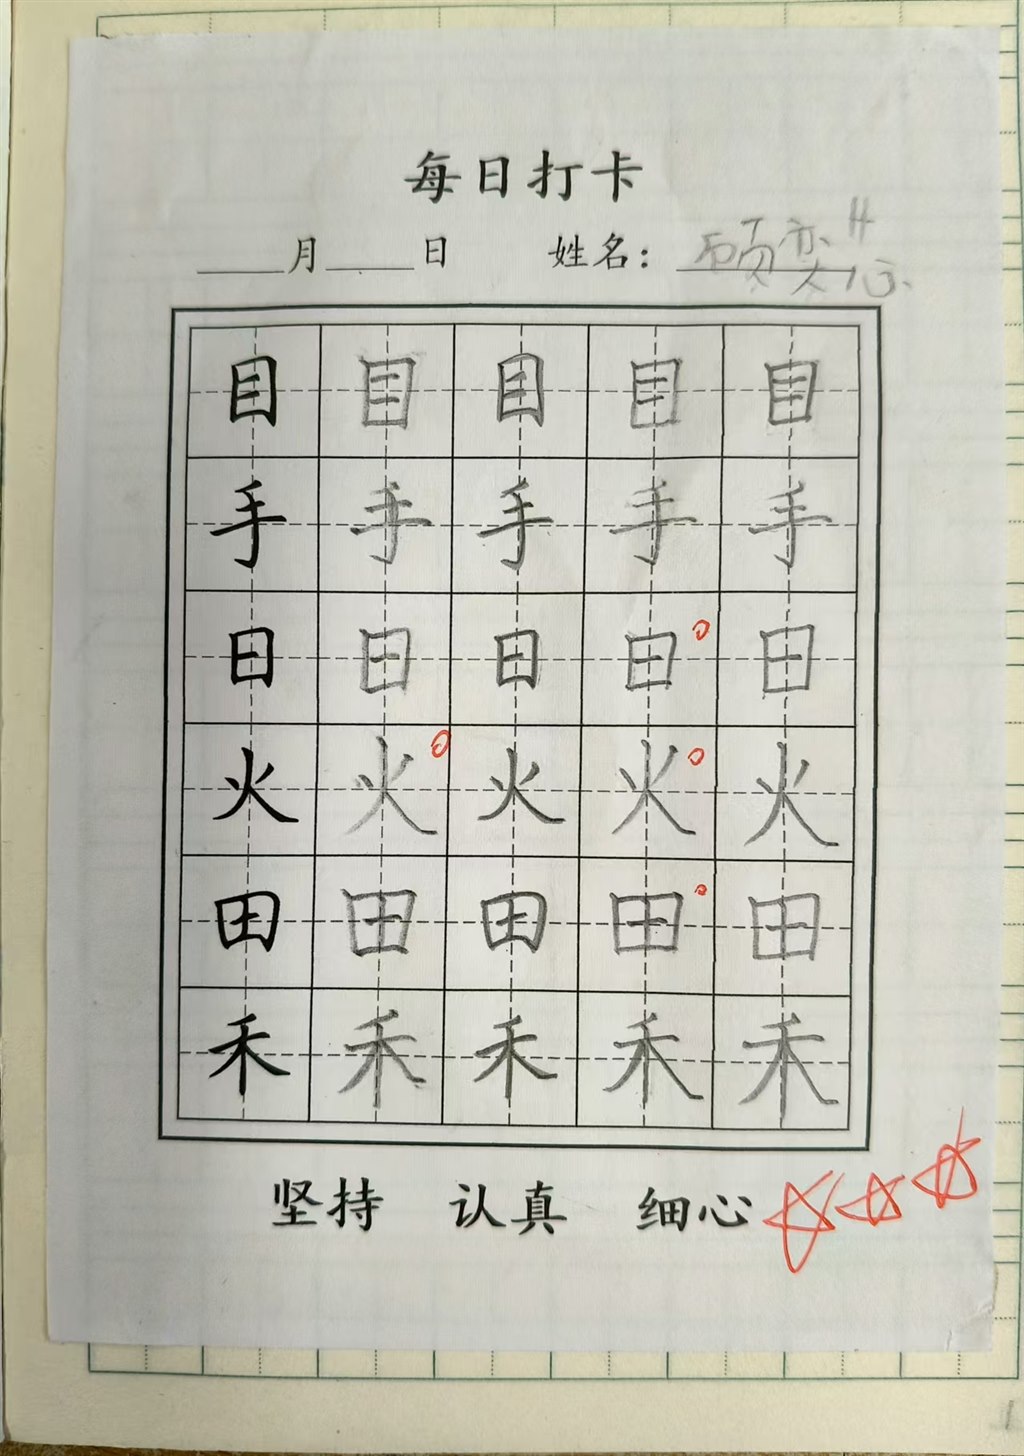 每日打卡
____月____日 姓名：
目 目 目 目 目
手 手 手 手 手
日 日 日 日 日
火 火 火 火 火
田 田 田 田 田
禾 禾 禾 禾 禾
坚持 认真 细心